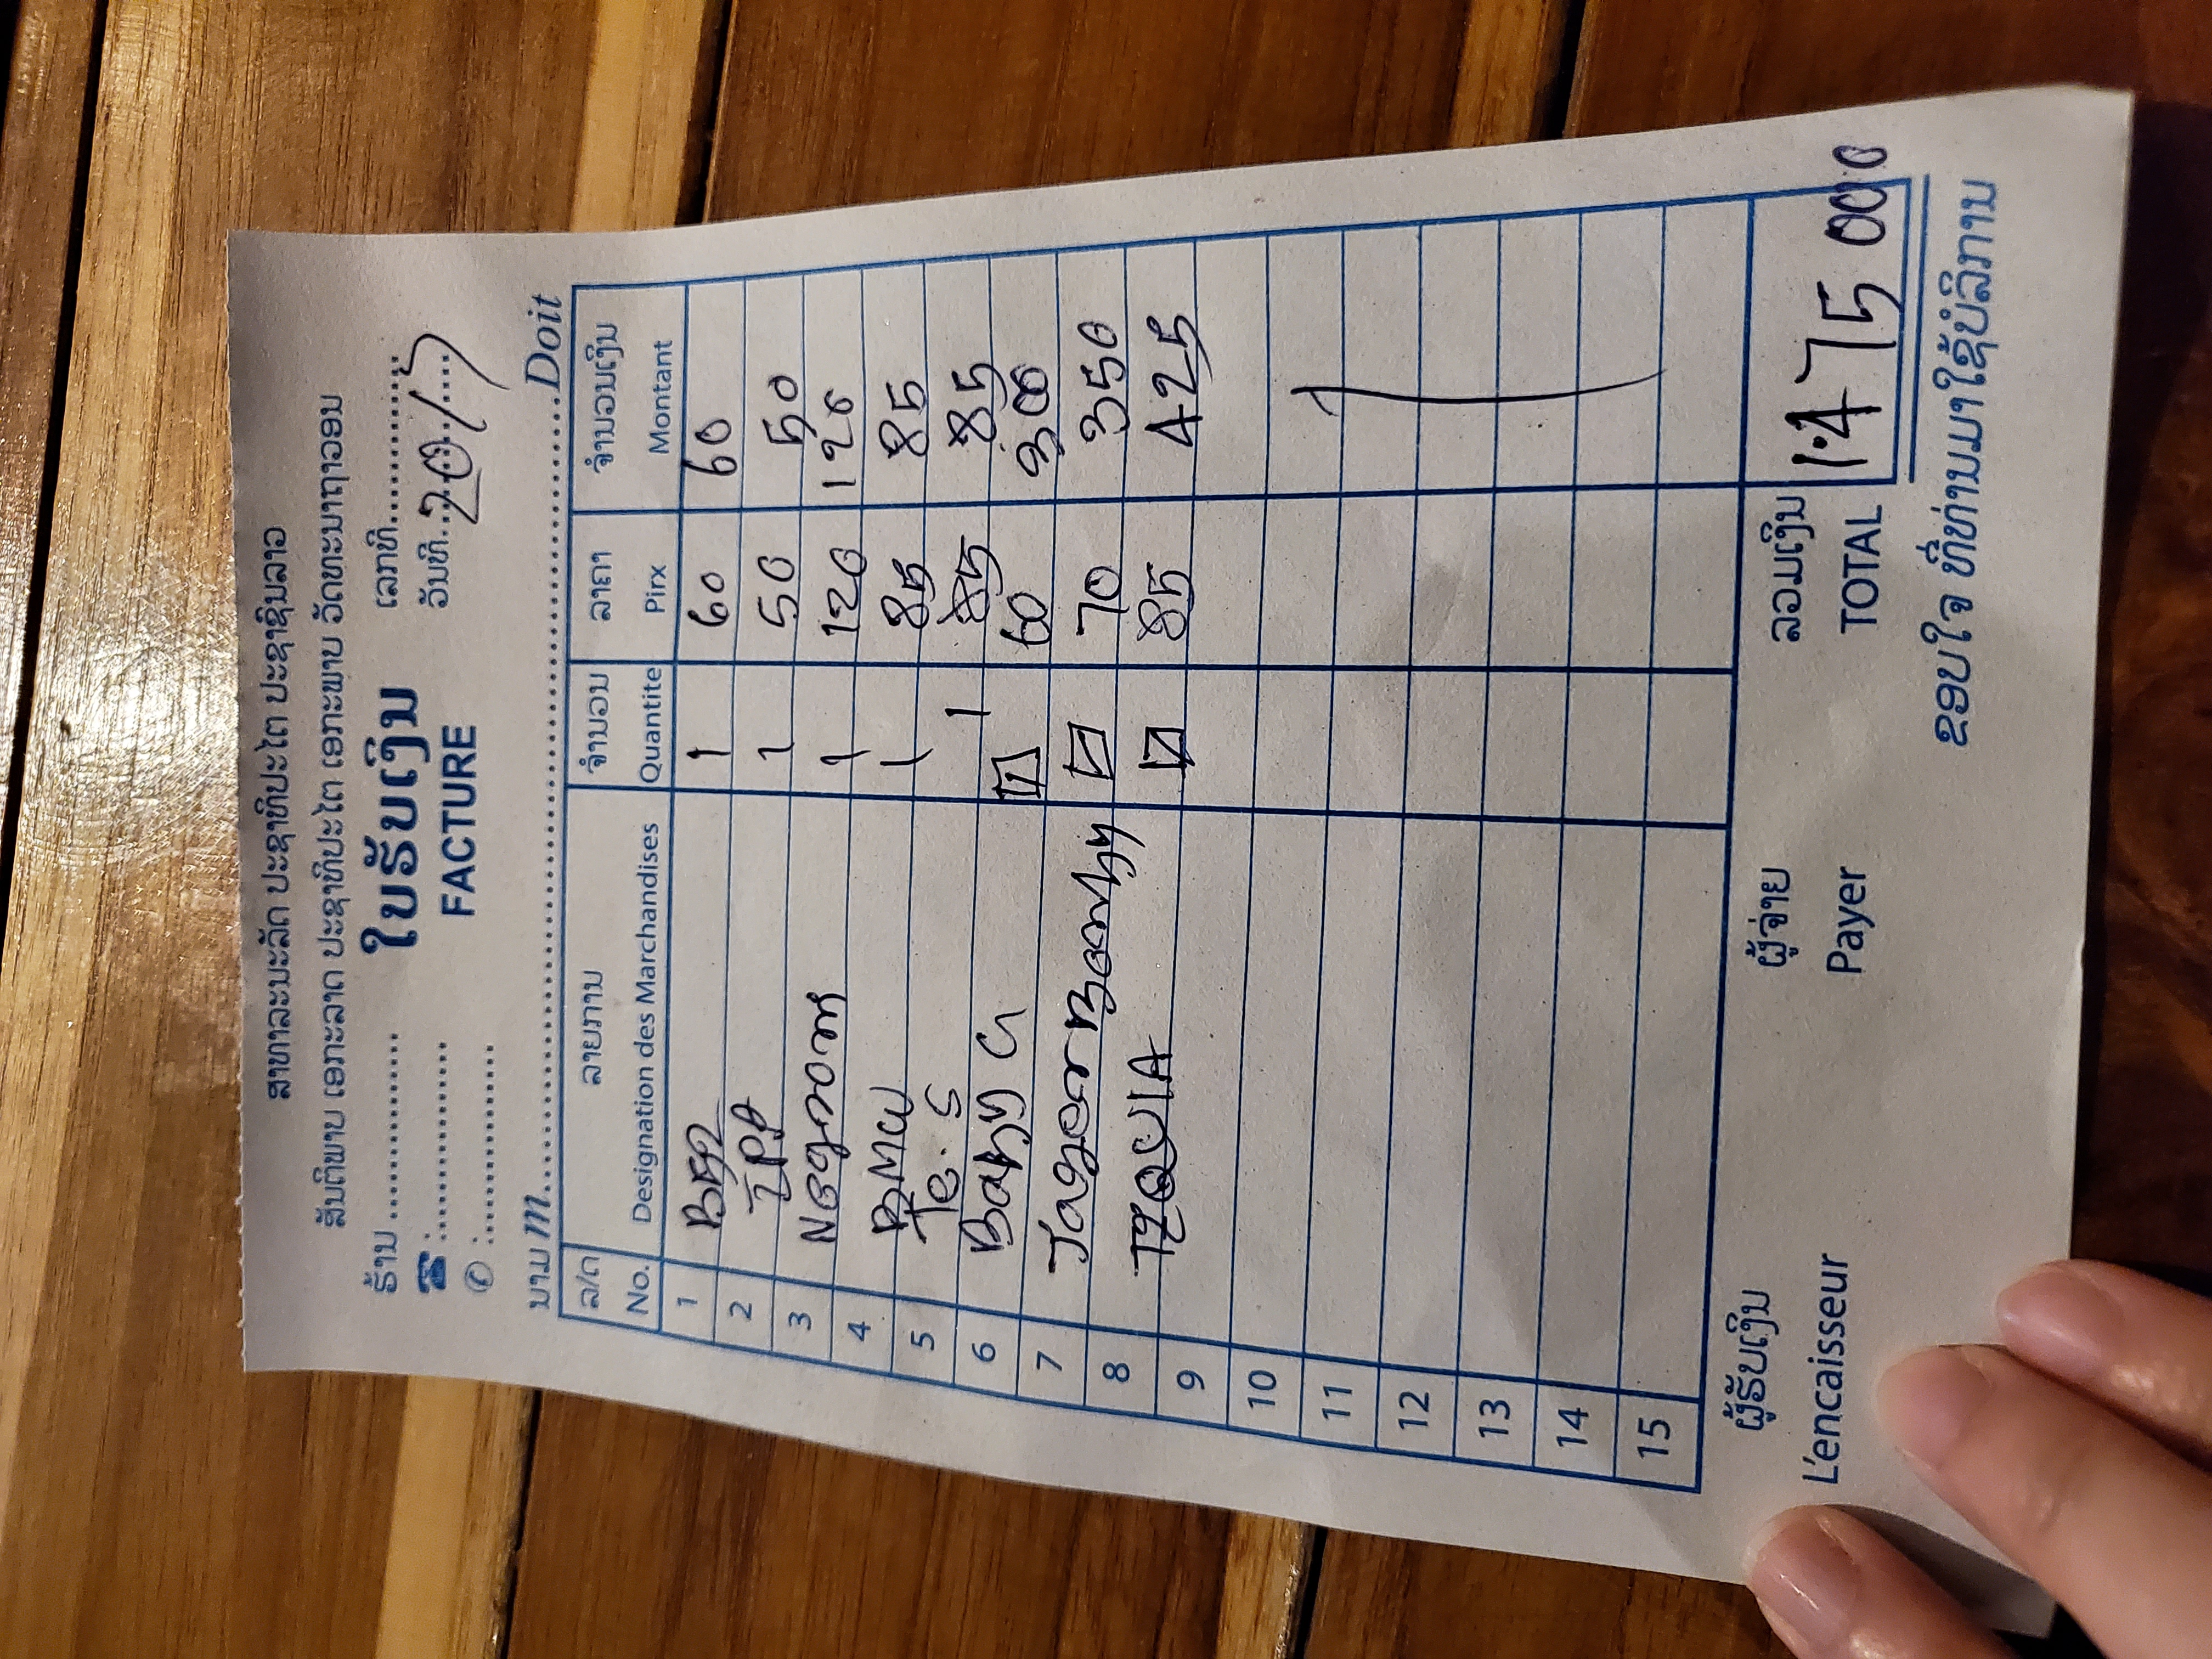 ສາທາລະນະລັດ ປະຊາທິປະໄຕ ປະຊາຊົນລາວ
ສັນຕິພາບ ເອກະລາດ ປະຊາທິປະໄຕ ເອກະພາບ ວັດທະນາຖາວອນ
ຮ້ານ ............... ໃບຮັບເງິນ ເລກທີ...............
☎:............... FACTURE ວັນທີ...20/7....
✆:...............
ນາມ m.....................................................Doit
ລ/ດ ລາຍການ ຈຳນວນ ລາຄາ ຈຳນວນເງິນ
No. Designation des Marchandises Quantite Pirx Montant
1 1 60 60
2 IPA 1 50 50
3 Negroni 1 120 120
4 1 85 85
5 Te. S 1 85 85
6 Baby G 60 300
7 Jager Boomby 70 350
8 85 425
9
10
11
12
13
14
15
ຜູ້ຮັບເງິນ ຜູ້ຈ່າຍ ລວມເງິນ
L'encaisseur Payer TOTAL 1.475 000
ຂອບໃຈ ທີ່ທ່ານມາໃຊ້ບໍລິການ